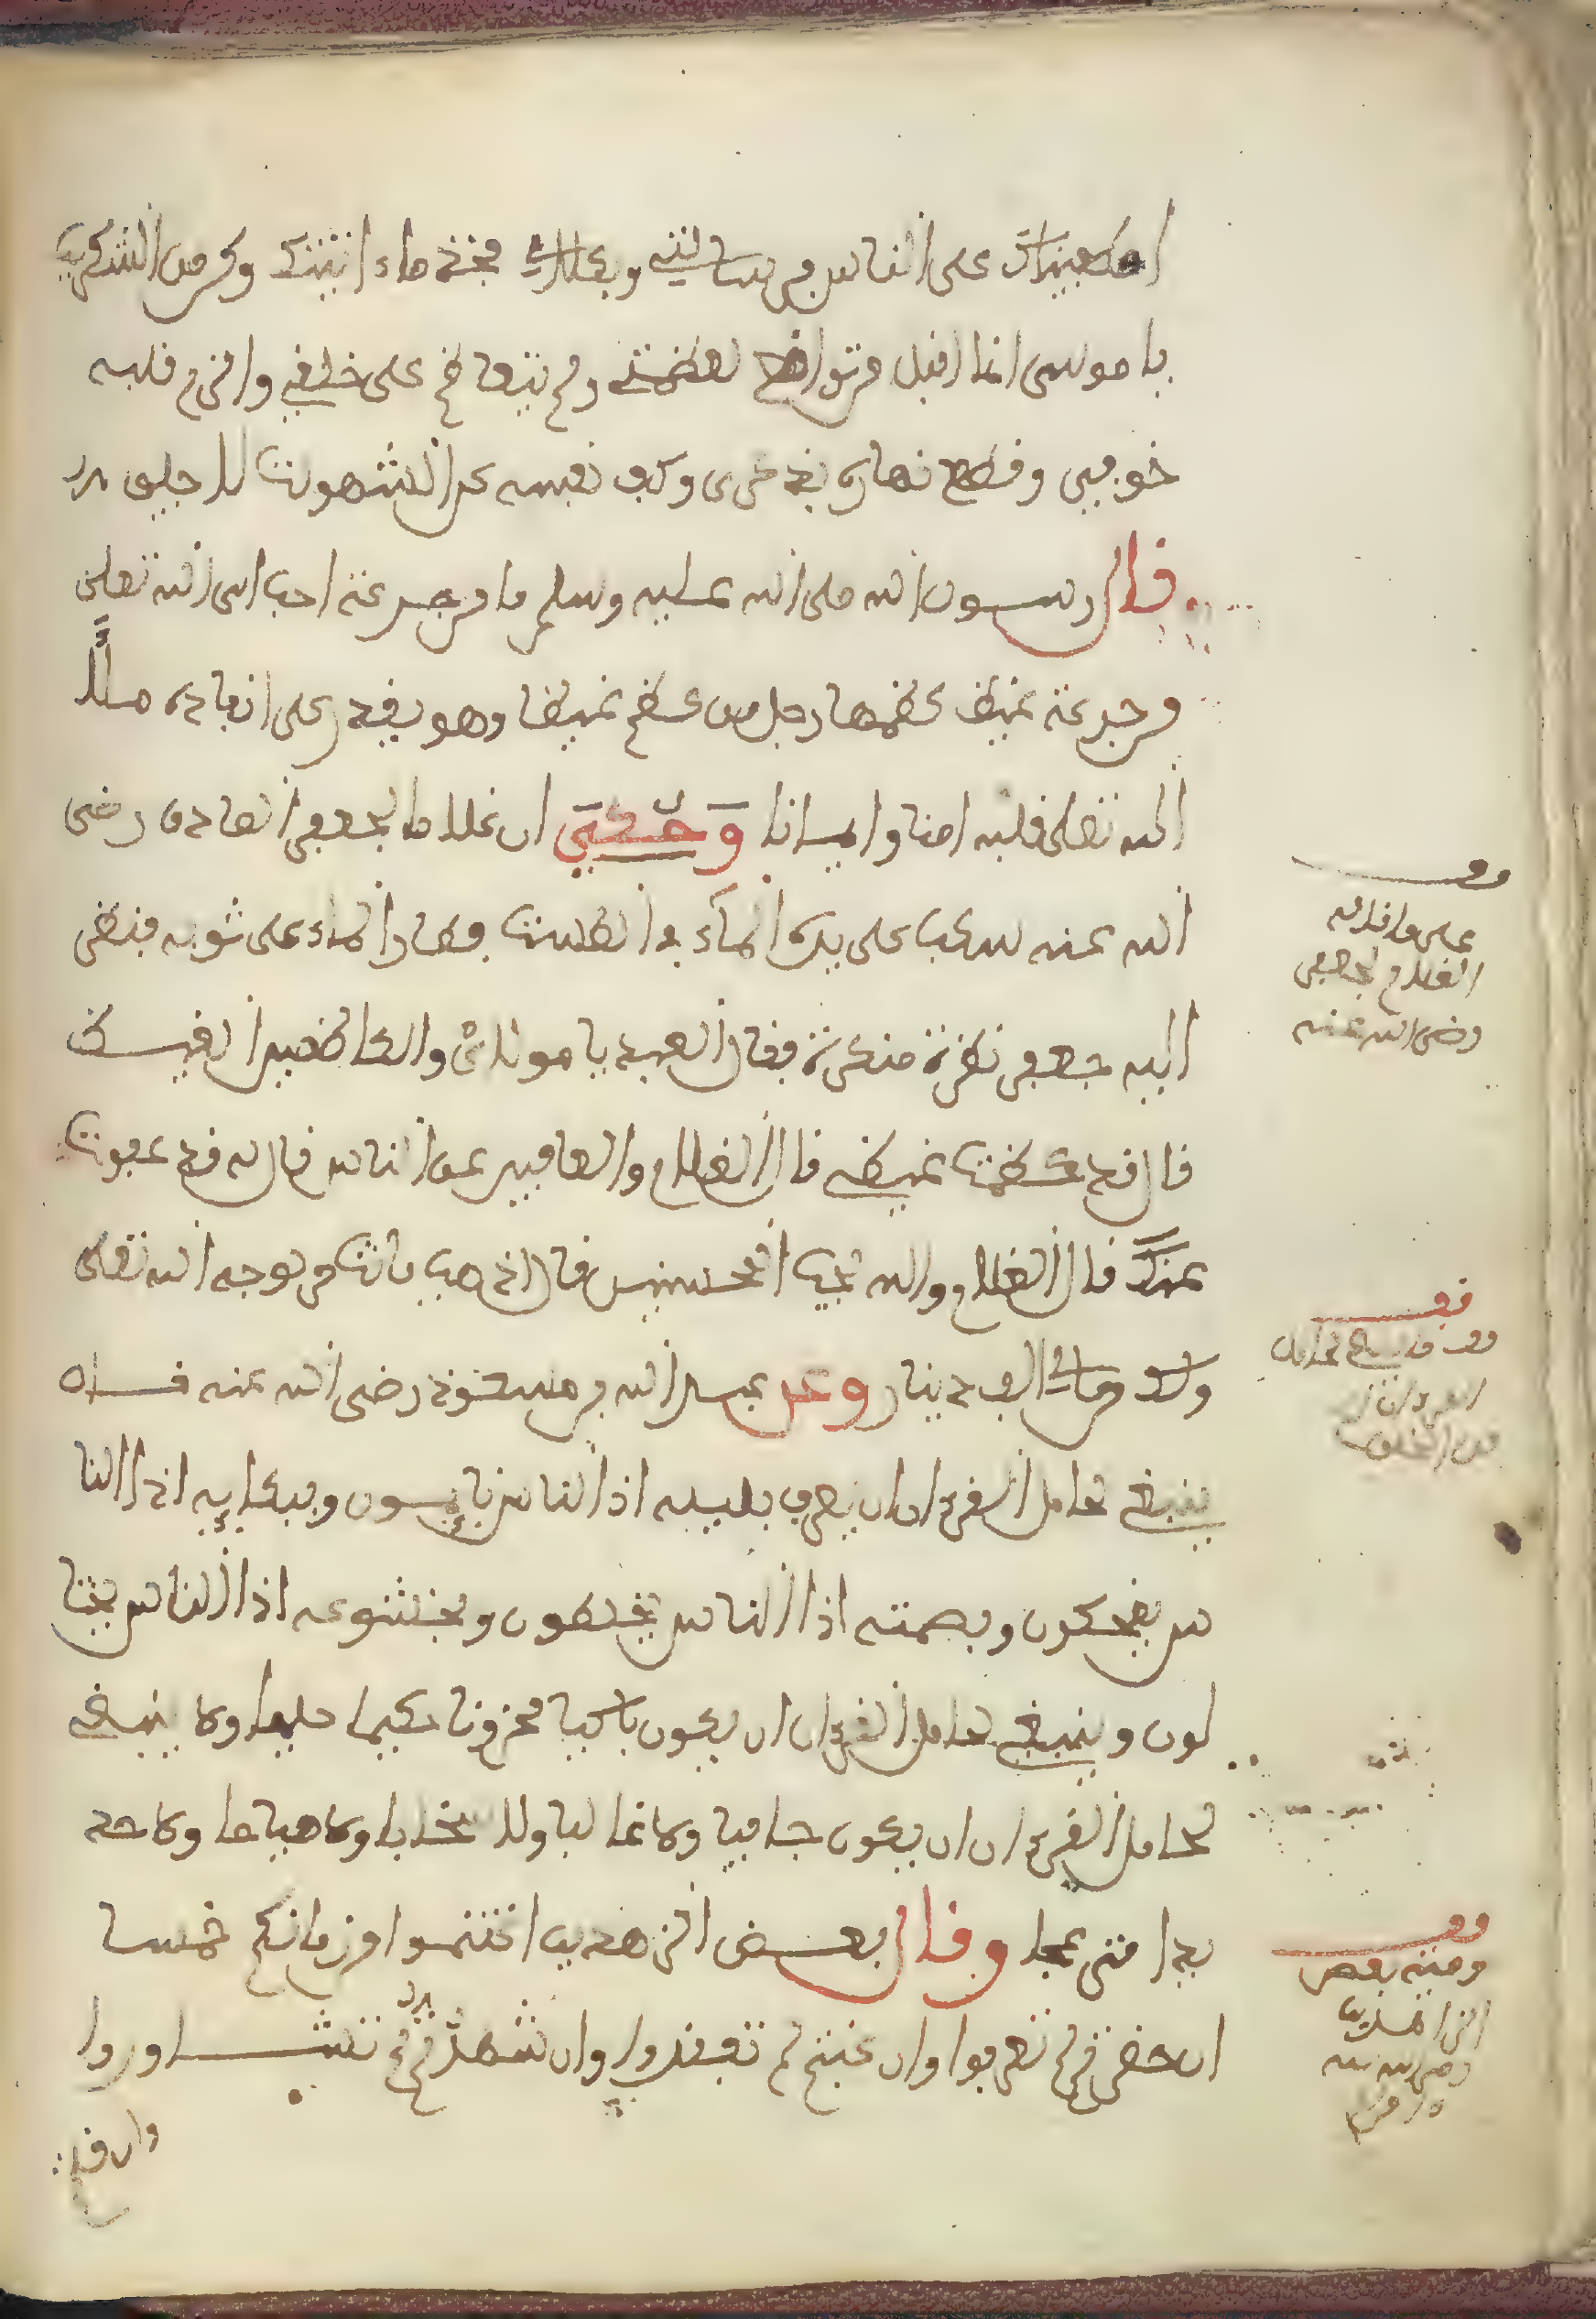 اصطفيتك على الناس برسالتي وبكلامي فخذ ما ءاتيتك وكن من الشكرين
يا موسى انما اقبل من تواضع لعظمتي ولم يتعاظم على خلقي والزم قلبه
خوفي وقطع نهاره بذكري وكف نفسه عن الشهوات لاجلي
قال رسول الله صلى الله عليه وسلم ما من جرعة احب الى الله تعلى
من جرعة غيظ كظمها رجل من كظم غيظا وهو يقدر على انفاذه ملأ
الله تعلى قلبه امنا وايمانا وحكي ان غلاما لجعفر الصادق رضي
الله عنه سكب على يده الماء في الطست فطار الماء على ثوبه فنظر
اليه جعفر نظرة منكرة فقال العبد يا مولاي والكاظمين الغيظ
قال قد كظمت غيظي قال الغلام والعافين عن الناس قال له قد عفوت
عنك قال الغلام والله يحب المحسنين قال اذهب فانت حر لوجه الله تعلى
ولك من مالي الف دينار وعن عبد الله بن مسعود رضي الله عنه قال
ينبغي لحامل القرءان ان يعرف بليله اذا الناس نايمون وببكايه اذا النا
س يضحكون وبصمته اذا الناس يخلطون وبخشوعه اذا الناس يختا
لون وينبغي لحامل القرءان ان يكون باكيا محزونا حكيما حليما ولا ينبغي
لحامل القرءان ان يكون جافيا ولا غافلا ولا سخابا ولا صياحا ولا حد
يدا وقال بعض الزهدين اغتنموا من زمانكم خمسا
ان حضرتم لم تعرفوا وان غبتم لم تفقدوا وان شهدتم لم تشاوروا
وان قلتم
قف
على ما قاله
الغلام لجعفر
رضي الله عنه
قف
قف ينبغي لحامل
القرءان
قف
وصية بعض
الزاهدين